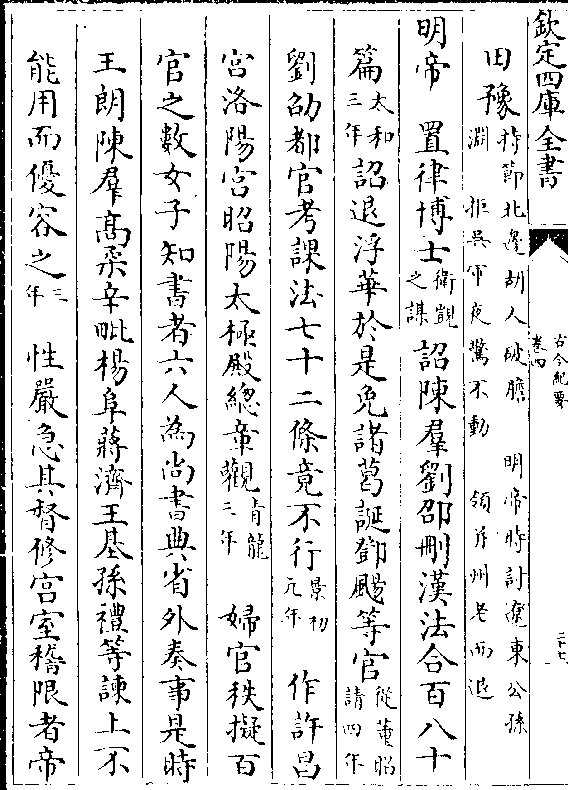 欽定四庫全書
古今紀要
卷四
二十七
田豫持節北邊胡人破膽　明帝時討遼東公孫淵　拒吳軍夜驚不動　領并州老而退
明帝　置律博士衛覬之謀詔陳羣劉邵刪漢法合百八十
篇太和三年詔退浮華於是免諸葛誕鄧颺等官從董昭請四年
劉劭都官考課法七十二條竟不行景初元年　作許昌
宫洛陽宫昭陽太極殿總章觀青龍三年　婦官秩擬百
官之數女子知書者六人為尚書典省外奏事是時
王朗陳羣髙柔辛毗楊阜蔣濟王基孫禮等諫上不
能用而優容之三年　性嚴急其督修宫室稽限者帝